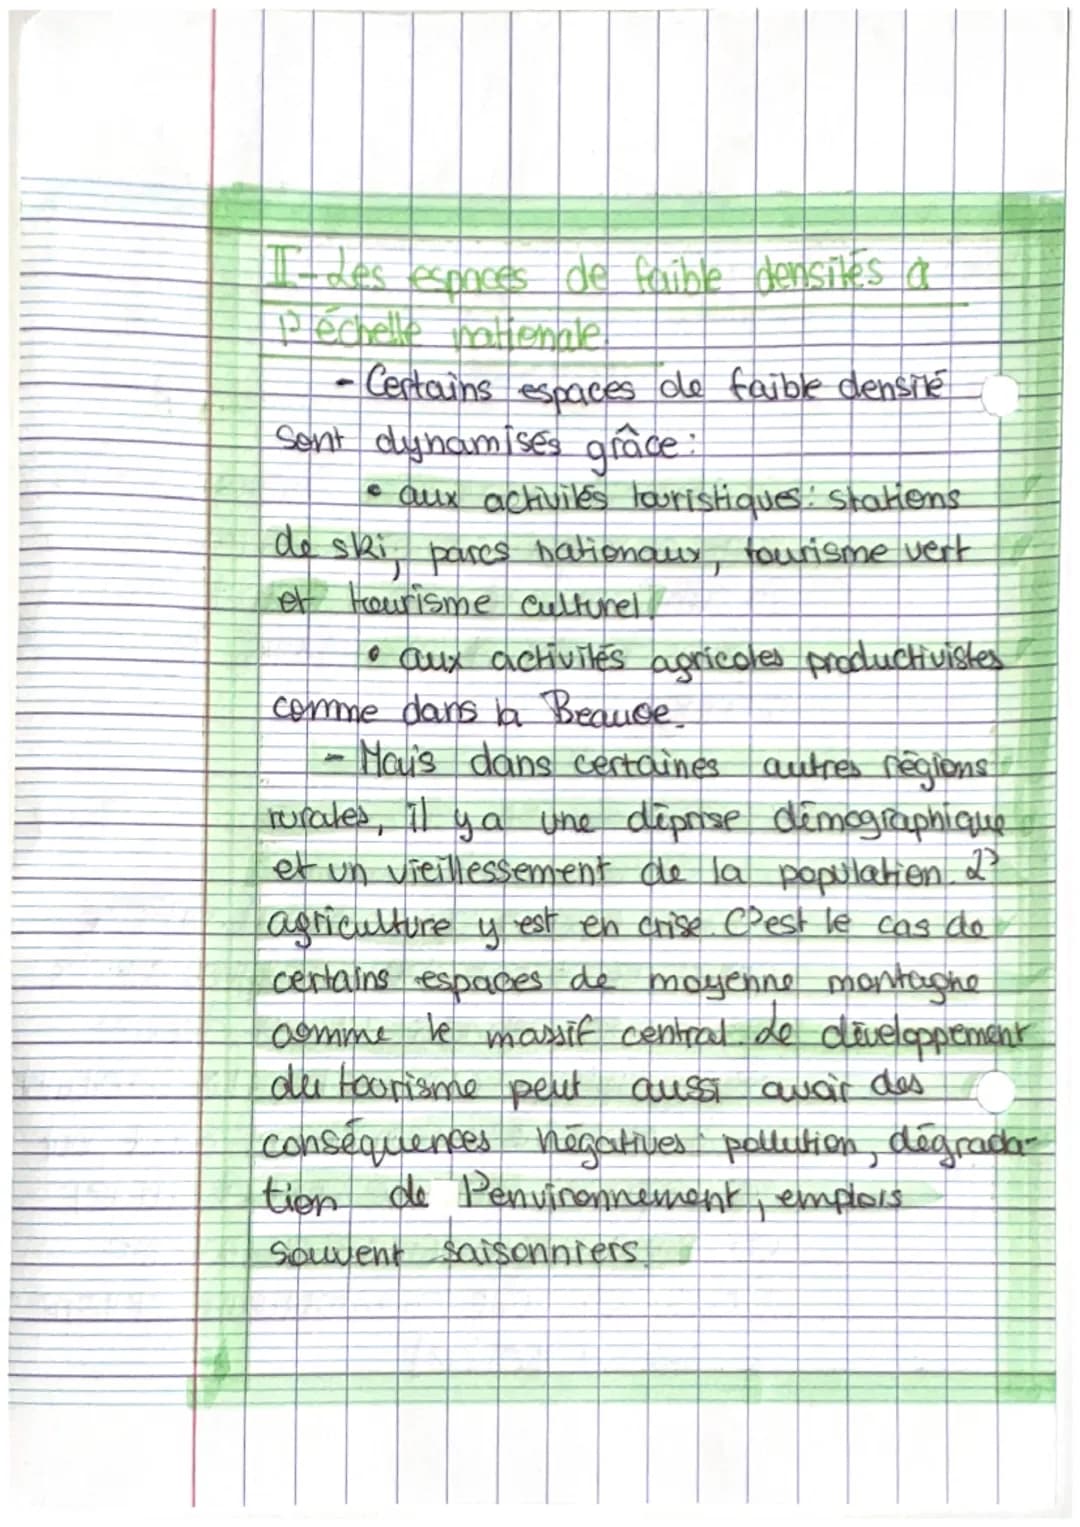 II-Les espaces de faible densités à
l'échelle nationale.
- Certains espaces de faible densité
sont dynamisés grâce :
• aux activités touristiques : stations
de ski, parcs nationaux, tourisme vert
et tourisme culturel.
• aux activités agricoles productivistes
comme dans la Beauce.
- Mais dans certaines autres régions
rurales, il y a une déprise démographique
et un vieillessement de la population. L'
agriculture y est en crise. C'est le cas de
certains espaces de moyenne montagne
comme le massif central. Le développement
du tourisme peut aussi avoir des
conséquences négatives : pollution, dégrada-
tion de l'environnement, emplois
souvent saisonniers.